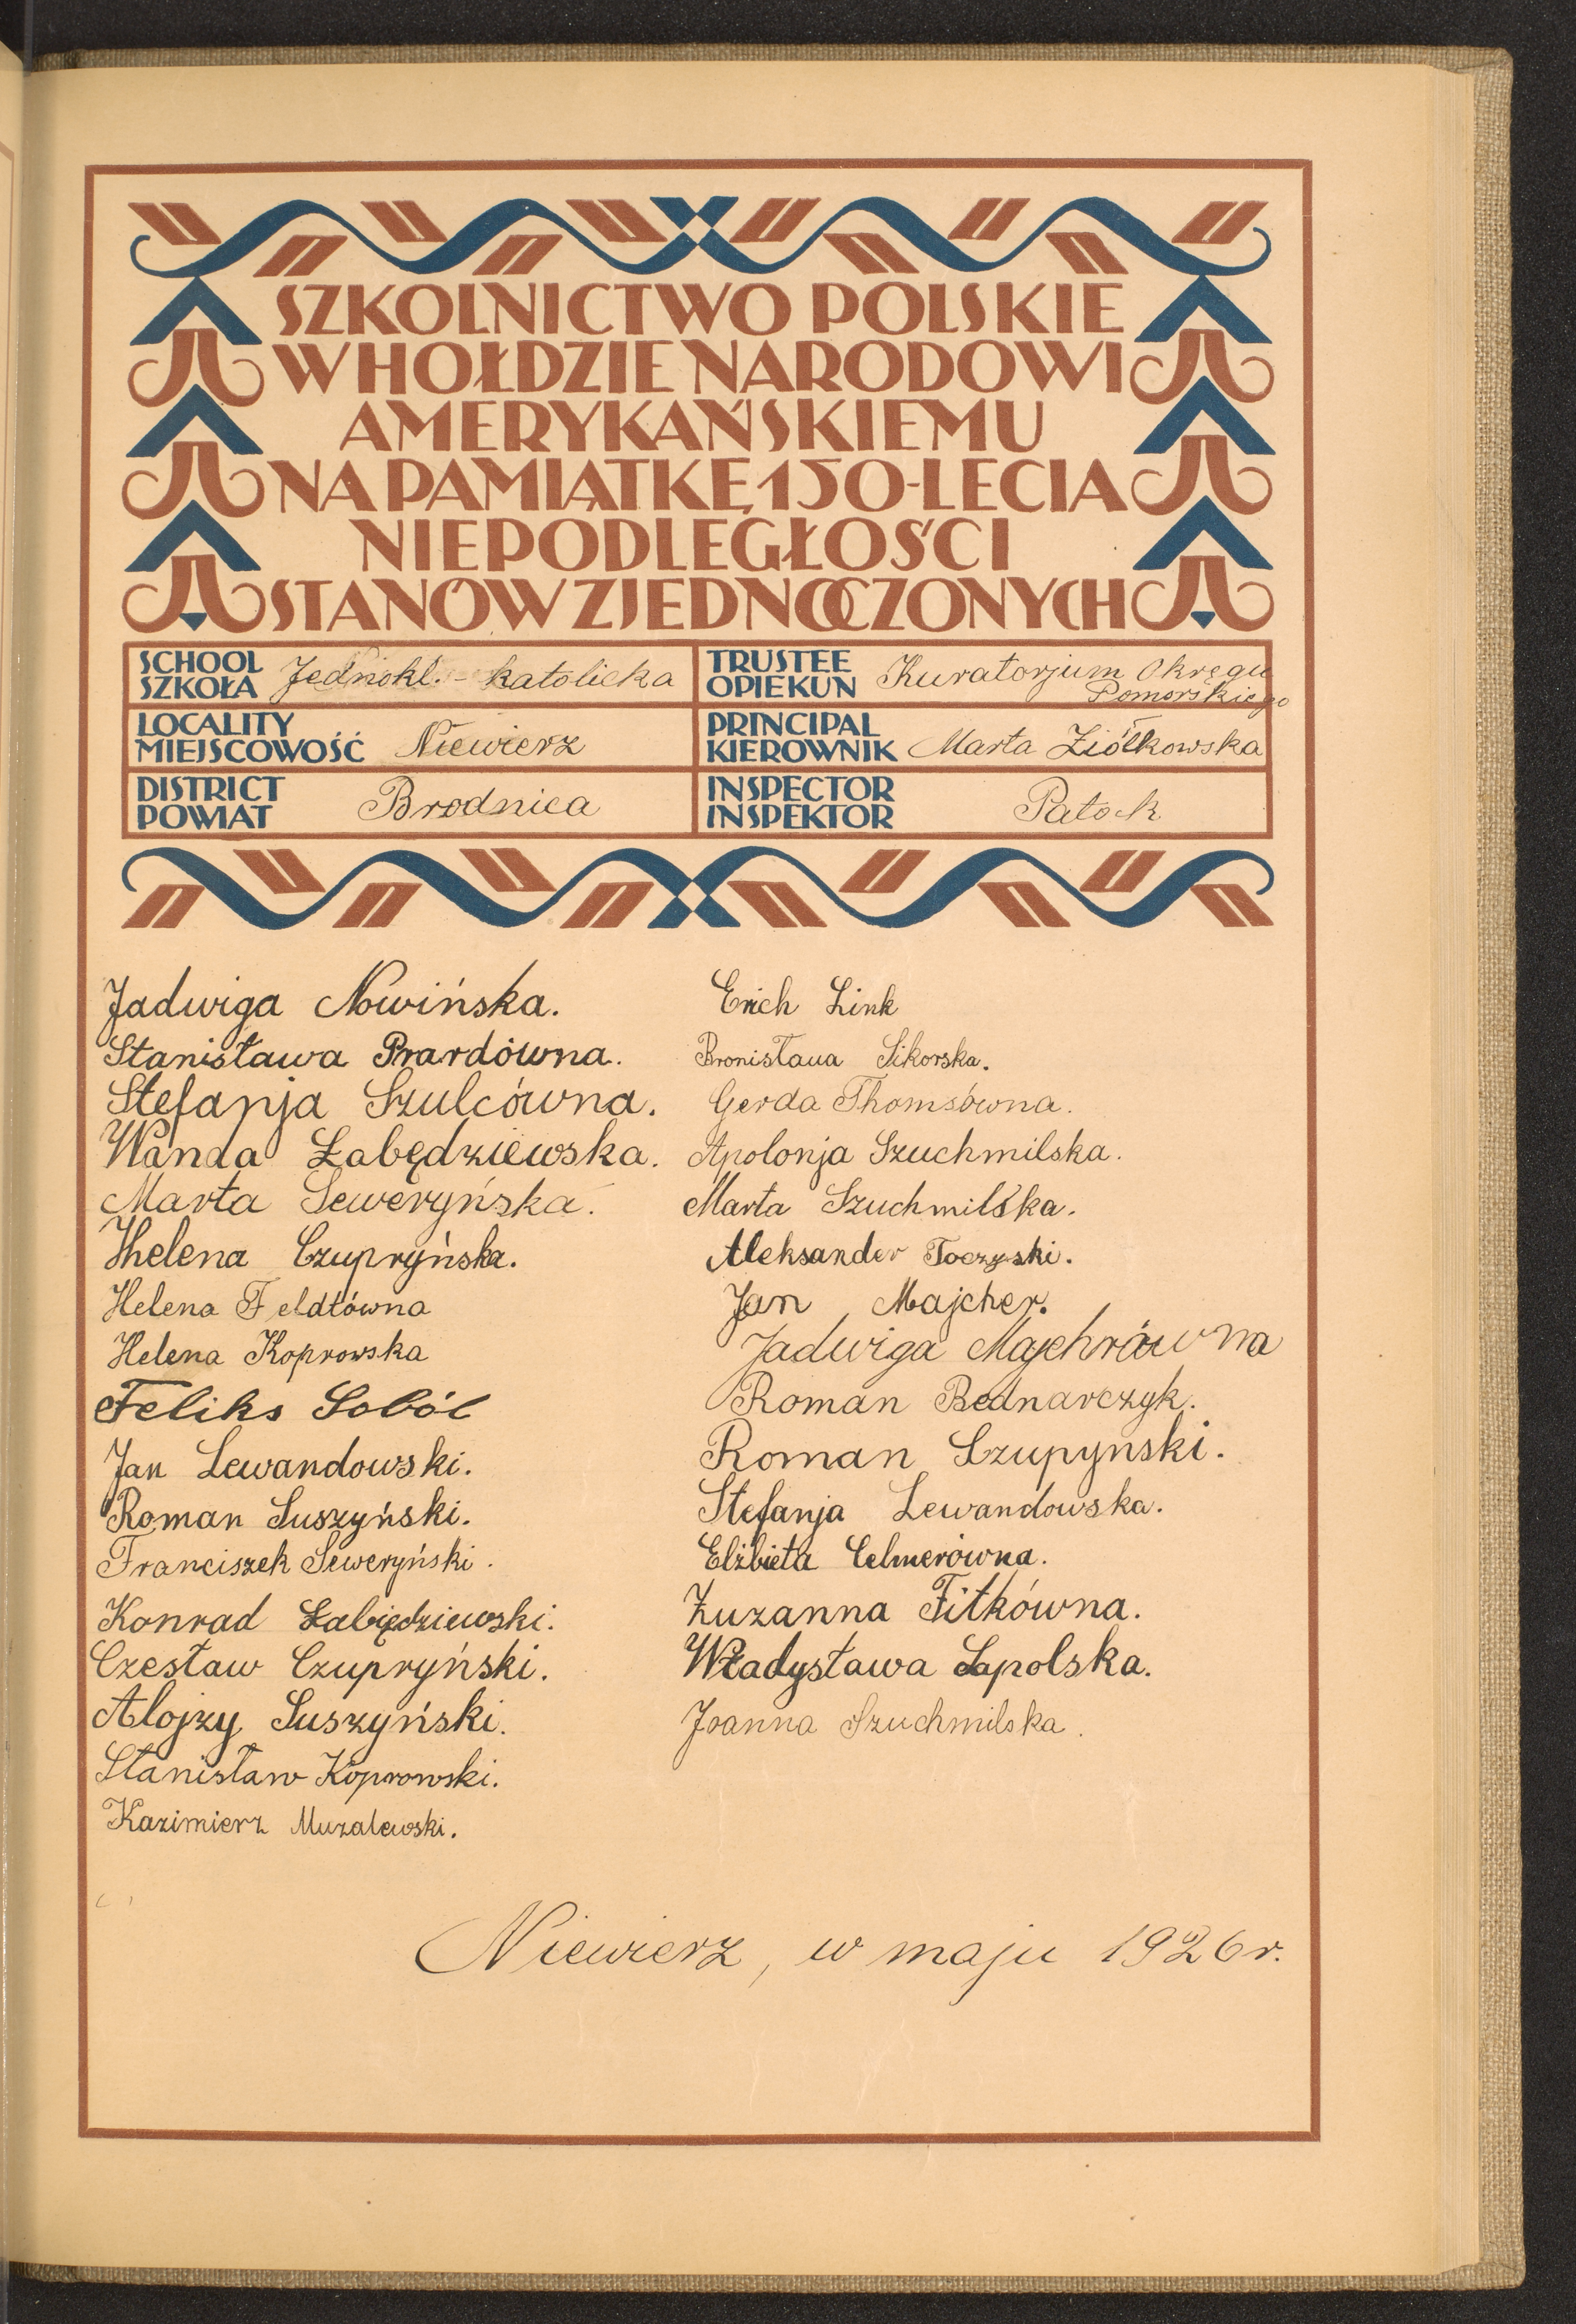 SZKOLNICTWO POLSKIE
W HOŁDZIE NARODOWI
AMERYKAŃSKIEMU
NA PAMIĄTKĘ 150-LECIA
NIEPODLEGŁOŚCI
STANÓW ZJEDNOCZONYCH
SCHOOL
SZKOŁA
Jednokl. - katolicka
TRUSTEE
OPIEKUN
Kuratorjum Okręgu
Pomorskiego
LOCALITY
MIEJSCOWOŚĆ
Niewierz
PRINCIPAL
KIEROWNIK
Marta Ziółkowska
DISTRICT
POWIAT
Brodnica
INSPECTOR
INSPEKTOR
Patock
Jadwiga Nowińska.
Stanisława Prardówna.
Stefanja Szulcówna.
Wanda Łabędziewska.
Marta Seweryńska.
Hhelena Czupryńska.
Helena Feldtówna
Helena Koprowska
Feliks Soból
Jan Lewandowski.
Roman Suszyński.
Franciszek Seweryński.
Konrad Łabiędziewski.
Czesław Czupryński.
Alojzy Suszyński.
Stanisław Koprowski.
Kazimierz Muzalewski.
Erich Link
Bronisława Sikorska.
Gerda Thomsówna.
Apolonja Szuchmilska.
Marta Szuchmilska.
Aleksander Toczyski.
Jan Majcher.
Jadwiga Majchrówna
Roman Bednarczyk.
Roman Czupynski.
Stefanja Lewandowska.
Elżbieta Celmerówna.
Zuzanna Fitkówna.
Władysława Sapolska.
Joanna Szuchmilska.
Niewierz, w maju 1926 r.